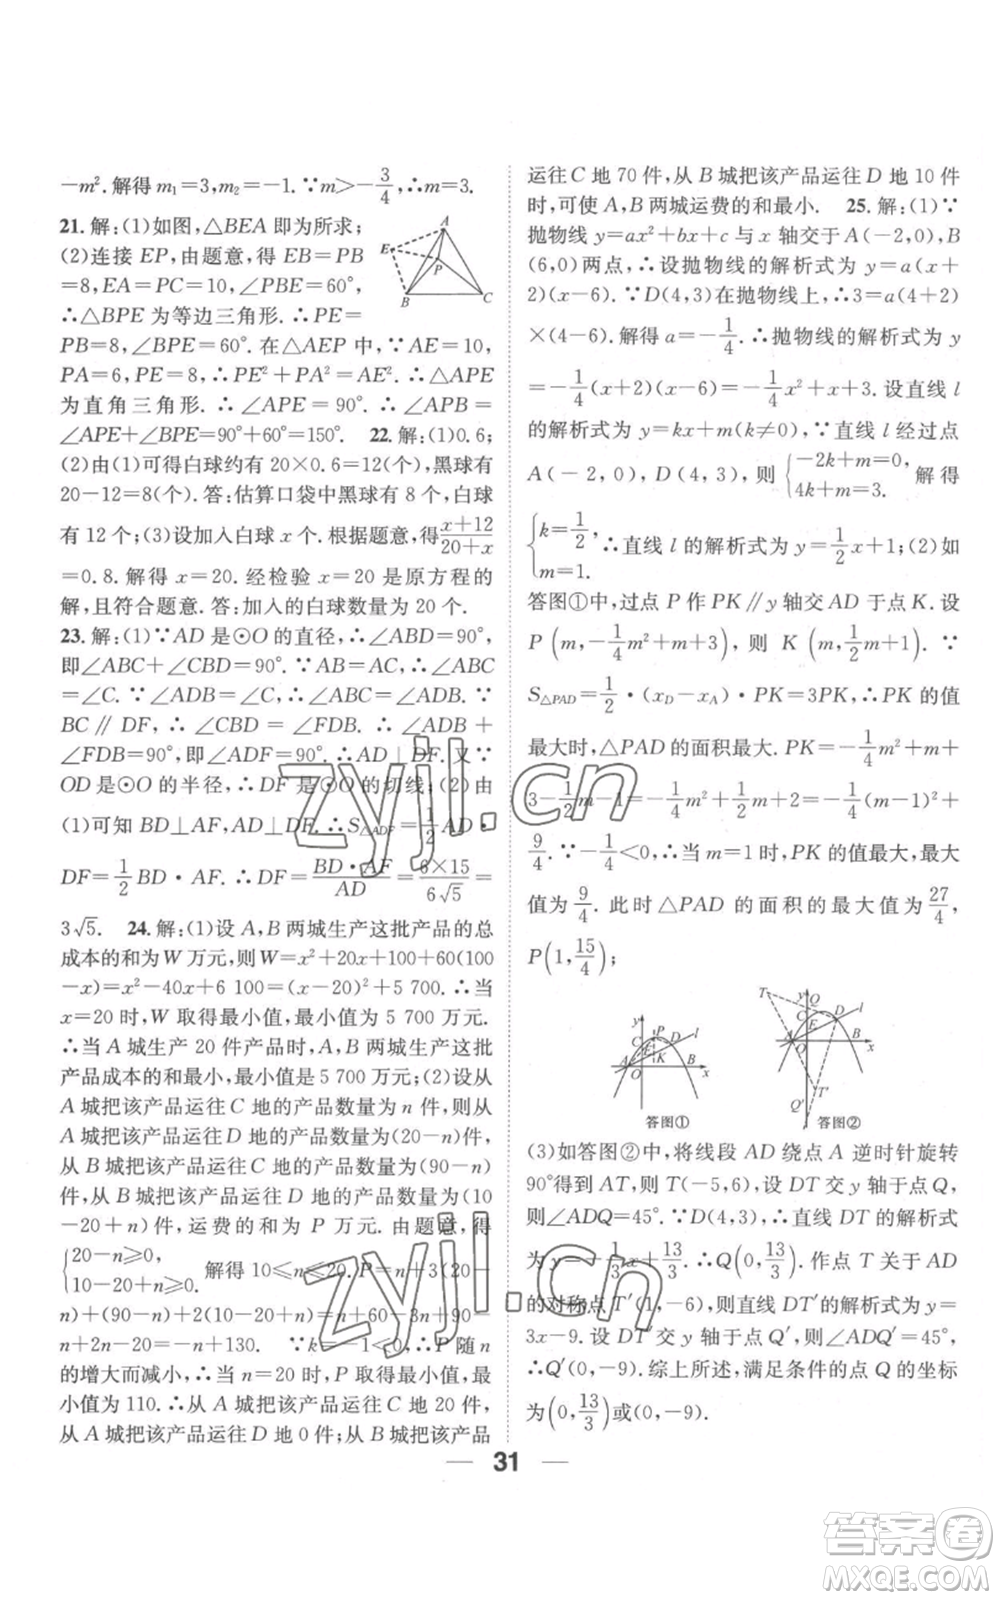 -m². 解得 m₁=3,m₂=-1. ∵m>-3/4,∴m=3.
21. 解:(1)如图,△BEA 即为所求;
(2)连接 EP,由题意,得 EB=PB
=8,EA=PC=10,∠PBE=60°.
∴△BPE 为等边三角形. ∴PE=
PB=8,∠BPE=60°. 在△AEP 中,∵AE=10,
PA=6,PE=8,∴PE²+PA²=AE². ∴△AEP
为直角三角形. ∴∠APE=90°. ∴∠APB=
∠APE+∠BPE=90°+60°=150°. 22. 解:(1)0.6;
(2)由(1)可得白球约有 20×0.6=12(个),黑球有
20-12=8(个). 答:估算口袋中黑球有 8 个,白球
有 12 个;(3)设加入白球 x 个. 根据题意,得(x+12)/(20+x)
=0.8. 解得 x=20. 经检验 x=20 是原方程的
解,且符合题意. 答:加入的白球数量为 20 个.
23. 解:(1)∵AD 是⊙O 的直径,∴∠ABD=90°,
即∠ABC+∠CBD=90°. ∵AB=AC,∴∠ABC
=∠ACB. ∵∠ACB=∠ADB,∴∠ABC=∠ADB. ∵
BC∥DF,∴∠CBD=∠FDB. ∴∠ADB+
∠FDB=90°,即∠ADF=90°. ∴AD⊥DF. 又∵
OD 是⊙O 的半径,∴DF 是⊙O 的切线;(2)由
(1)可知 BD⊥AF,AD⊥DF. ∴S△ADF=1/2 AD·
DF=1/2 BD·AF. ∴DF=(BD·AF)/AD=(6×15)/(6√5)=
3√5. 24. 解:(1)设 A,B 两城生产这批产品的总
成本的和为 W 万元,则W=x²+20x+100+60(100
-x)=x²-40x+6 100=(x-20)²+5 700. ∴当
x=20 时,W 取得最小值,最小值为 5 700 万元.
∴当 A 城生产 20 件产品时,A,B 两城生产这批
产品成本的和最小,最小值是 5 700 万元;(2)设从
A 城把该产品运往 C 地的产品数量为 n 件,则从
A 城把该产品运往D 地的产品数量为(20-n)件,
从 B 城把该产品运往 C 地的产品数量为(90-n)
件,从 B 城把该产品运往 D 地的产品数量为(10
-20+n)件,运费的和为 P 万元. 由题意,得
{20-n≥0, 10-20+n≥0. 解得 10≤n≤20. P=n+3(20-
n)+(90-n)+2(10-20+n)=n+60-3n+90-
n+2n-20=-n+130. ∵k=-1<0,∴P 随 n
的增大而减小,∴当 n=20 时,P 取得最小值,最
小值为 110. ∴从 A 城把该产品运往 C 地 20 件,
从 A 城把该产品运往D 地 0 件;从 B 城把该产品
运往C 地 70 件,从 B 城把该产品运往 D 地 10 件
时,可使 A,B 两城运费的和最小. 25. 解:(1)∵
抛物线 y=ax²+bx+c 与 x 轴交于 A(-2,0),B
(6,0)两点,∴设抛物线的解析式为 y=a(x+
2)(x-6). ∵D(4,3)在抛物线上,∴3=a(4+2)
×(4-6). 解得 a=-1/4. ∴抛物线的解析式为 y
=-1/4(x+2)(x-6)=-1/4x²+x+3. 设直线 l
的解析式为 y=kx+m(k≠0),∵直线 l 经过点
A(-2,0),D(4,3),则{-2k+m=0, 4k+m=3. 解得
{k=1/2, m=1. ∴直线 l 的解析式为 y=1/2x+1;(2)如
答图①中,过点 P 作 PK∥y 轴交 AD 于点 K. 设
P(m,-1/4m²+m+3),则 K(m,1/2m+1). ∵
S△PAD=1/2·(xD-xA)·PK=3PK,∴PK 的值
最大时,△PAD 的面积最大. PK=-1/4m²+m+
3-1/2m-1=-1/4m²+1/2m+2=-1/4(m-1)²+
9/4. ∵-1/4<0,∴当 m=1 时,PK 的值最大,最大
值为 9/4. 此时△PAD 的面积的最大值为27/4,
P(1,15/4);
y C P D l E K A O B x
答图①
T y Q C E D l A O B x T′ Q′
答图②
(3)如答图②中,将线段 AD 绕点 A 逆时针旋转
90°得到 AT,则 T(-5,6),设 DT 交 y 轴于点 Q,
则∠ADQ=45°. ∵D(4,3),∴直线 DT 的解析式
为 y=-1/3x+13/3. ∴Q(0,13/3). 作点 T 关于 AD
的对称点 T′(1,-6),则直线 DT′的解析式为 y=
3x-9. 设 DT′交 y 轴于点 Q′,则∠ADQ′=45°,
∴Q′(0,-9). 综上所述,满足条件的点 Q 的坐标
为(0,13/3)或(0,-9).
31
zyjl.cn
zyjl.cn
答案圈
MXQE.COM